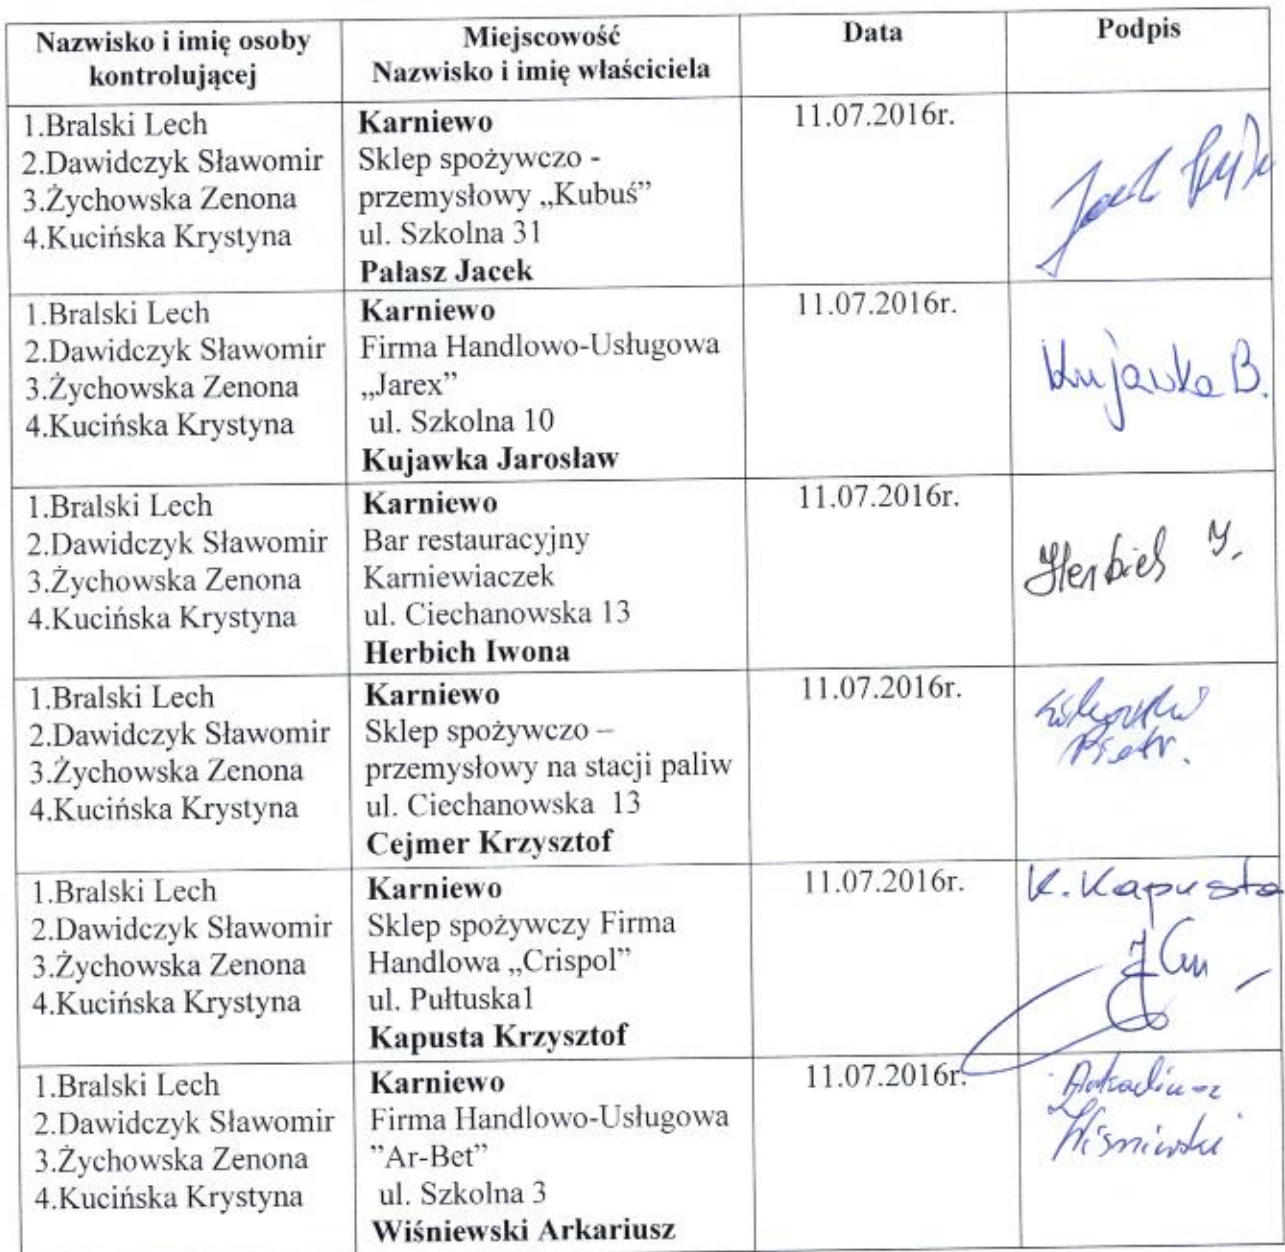 Nazwisko i imię osoby
kontrolującej
Miejscowość
Nazwisko i imię właściciela
Data
Podpis
1.Bralski Lech
2.Dawidczyk Sławomir
3.Żychowska Zenona
4.Kucińska Krystyna
Karniewo
Sklep spożywczo -
przemysłowy „Kubuś”
ul. Szkolna 31
Pałasz Jacek
11.07.2016r.
Jacek
1.Bralski Lech
2.Dawidczyk Sławomir
3.Żychowska Zenona
4.Kucińska Krystyna
Karniewo
Firma Handlowo-Usługowa
„Jarex”
ul. Szkolna 10
Kujawka Jarosław
11.07.2016r.
Kujawka B.
1.Bralski Lech
2.Dawidczyk Sławomir
3.Żychowska Zenona
4.Kucińska Krystyna
Karniewo
Bar restauracyjny
Karniewiaczek
ul. Ciechanowska 13
Herbich Iwona
11.07.2016r.
Herbich I.
1.Bralski Lech
2.Dawidczyk Sławomir
3.Żychowska Zenona
4.Kucińska Krystyna
Karniewo
Sklep spożywczo –
przemysłowy na stacji paliw
ul. Ciechanowska 13
Cejmer Krzysztof
11.07.2016r.
Piotr.
1.Bralski Lech
2.Dawidczyk Sławomir
3.Żychowska Zenona
4.Kucińska Krystyna
Karniewo
Sklep spożywczy Firma
Handlowa „Crispol”
ul. Pułtuska1
Kapusta Krzysztof
11.07.2016r.
K. Kapusta
1.Bralski Lech
2.Dawidczyk Sławomir
3.Żychowska Zenona
4.Kucińska Krystyna
Karniewo
Firma Handlowo-Usługowa
”Ar-Bet”
ul. Szkolna 3
Wiśniewski Arkariusz
11.07.2016r.
Arkadiusz
Wiśniewski